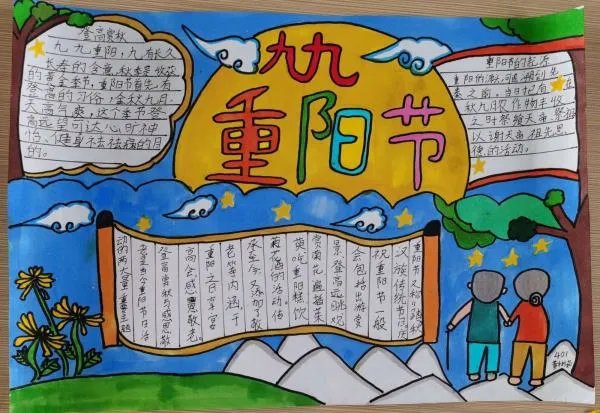 九九
重阳节
登高赏秋
九九重阳,九有长久
长寿的含意,秋季是收获
的黄金季节,重阳节首先有
登高的习俗,金秋九月,
天高气爽,这个季节登
高远望可达心旷神
怡、健身祛病的目
的。
重阳节的起源
重阳的源头,可追溯到先
秦之前,当时已有在
秋九月农作物丰收
之时祭飨天帝、祭祖
以谢天帝、祖先恩
德的活动。
重阳节又称踏秋
汉族传统节日,庆
祝重阳节一般
会包括出游赏
景、登高远眺、观
赏菊花、遍插茱
萸、吃重阳糕、饮
菊花酒的活动,传
承至今,又添加了敬
老等内涵,于
重阳之日享宴
高会,感恩敬老。
登高赏秋与感恩敬
老是当今重阳节日活
动的两大重要主题
401